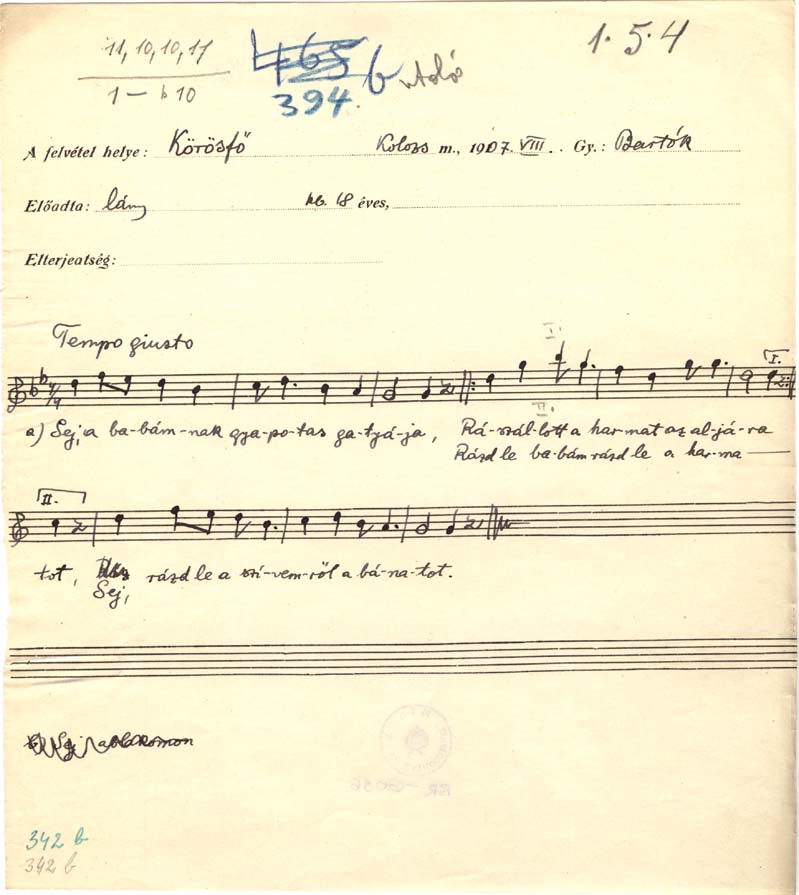 11, 10, 10, 11
1 – b10
465 b
394.
utolsó
1.5.4
A felvétel helye: Körösfő Kolozs m., 1907. VIII. Gy.: Bartók
Előadta: lány kb. 18 éves,
Elterjedtség:
Tempo giusto
I.
I.
II.
a) Sej, a ba-bám-nak gya-po-tas ga-tyá-ja, Rá-szál-lott a har-mat az al-já-ra
Rázd le ba-bám rázd le a har-ma—
II.
tot, rázd le a szí-vem-ről a bá-na-tot.
Sej,
342 b
342 b